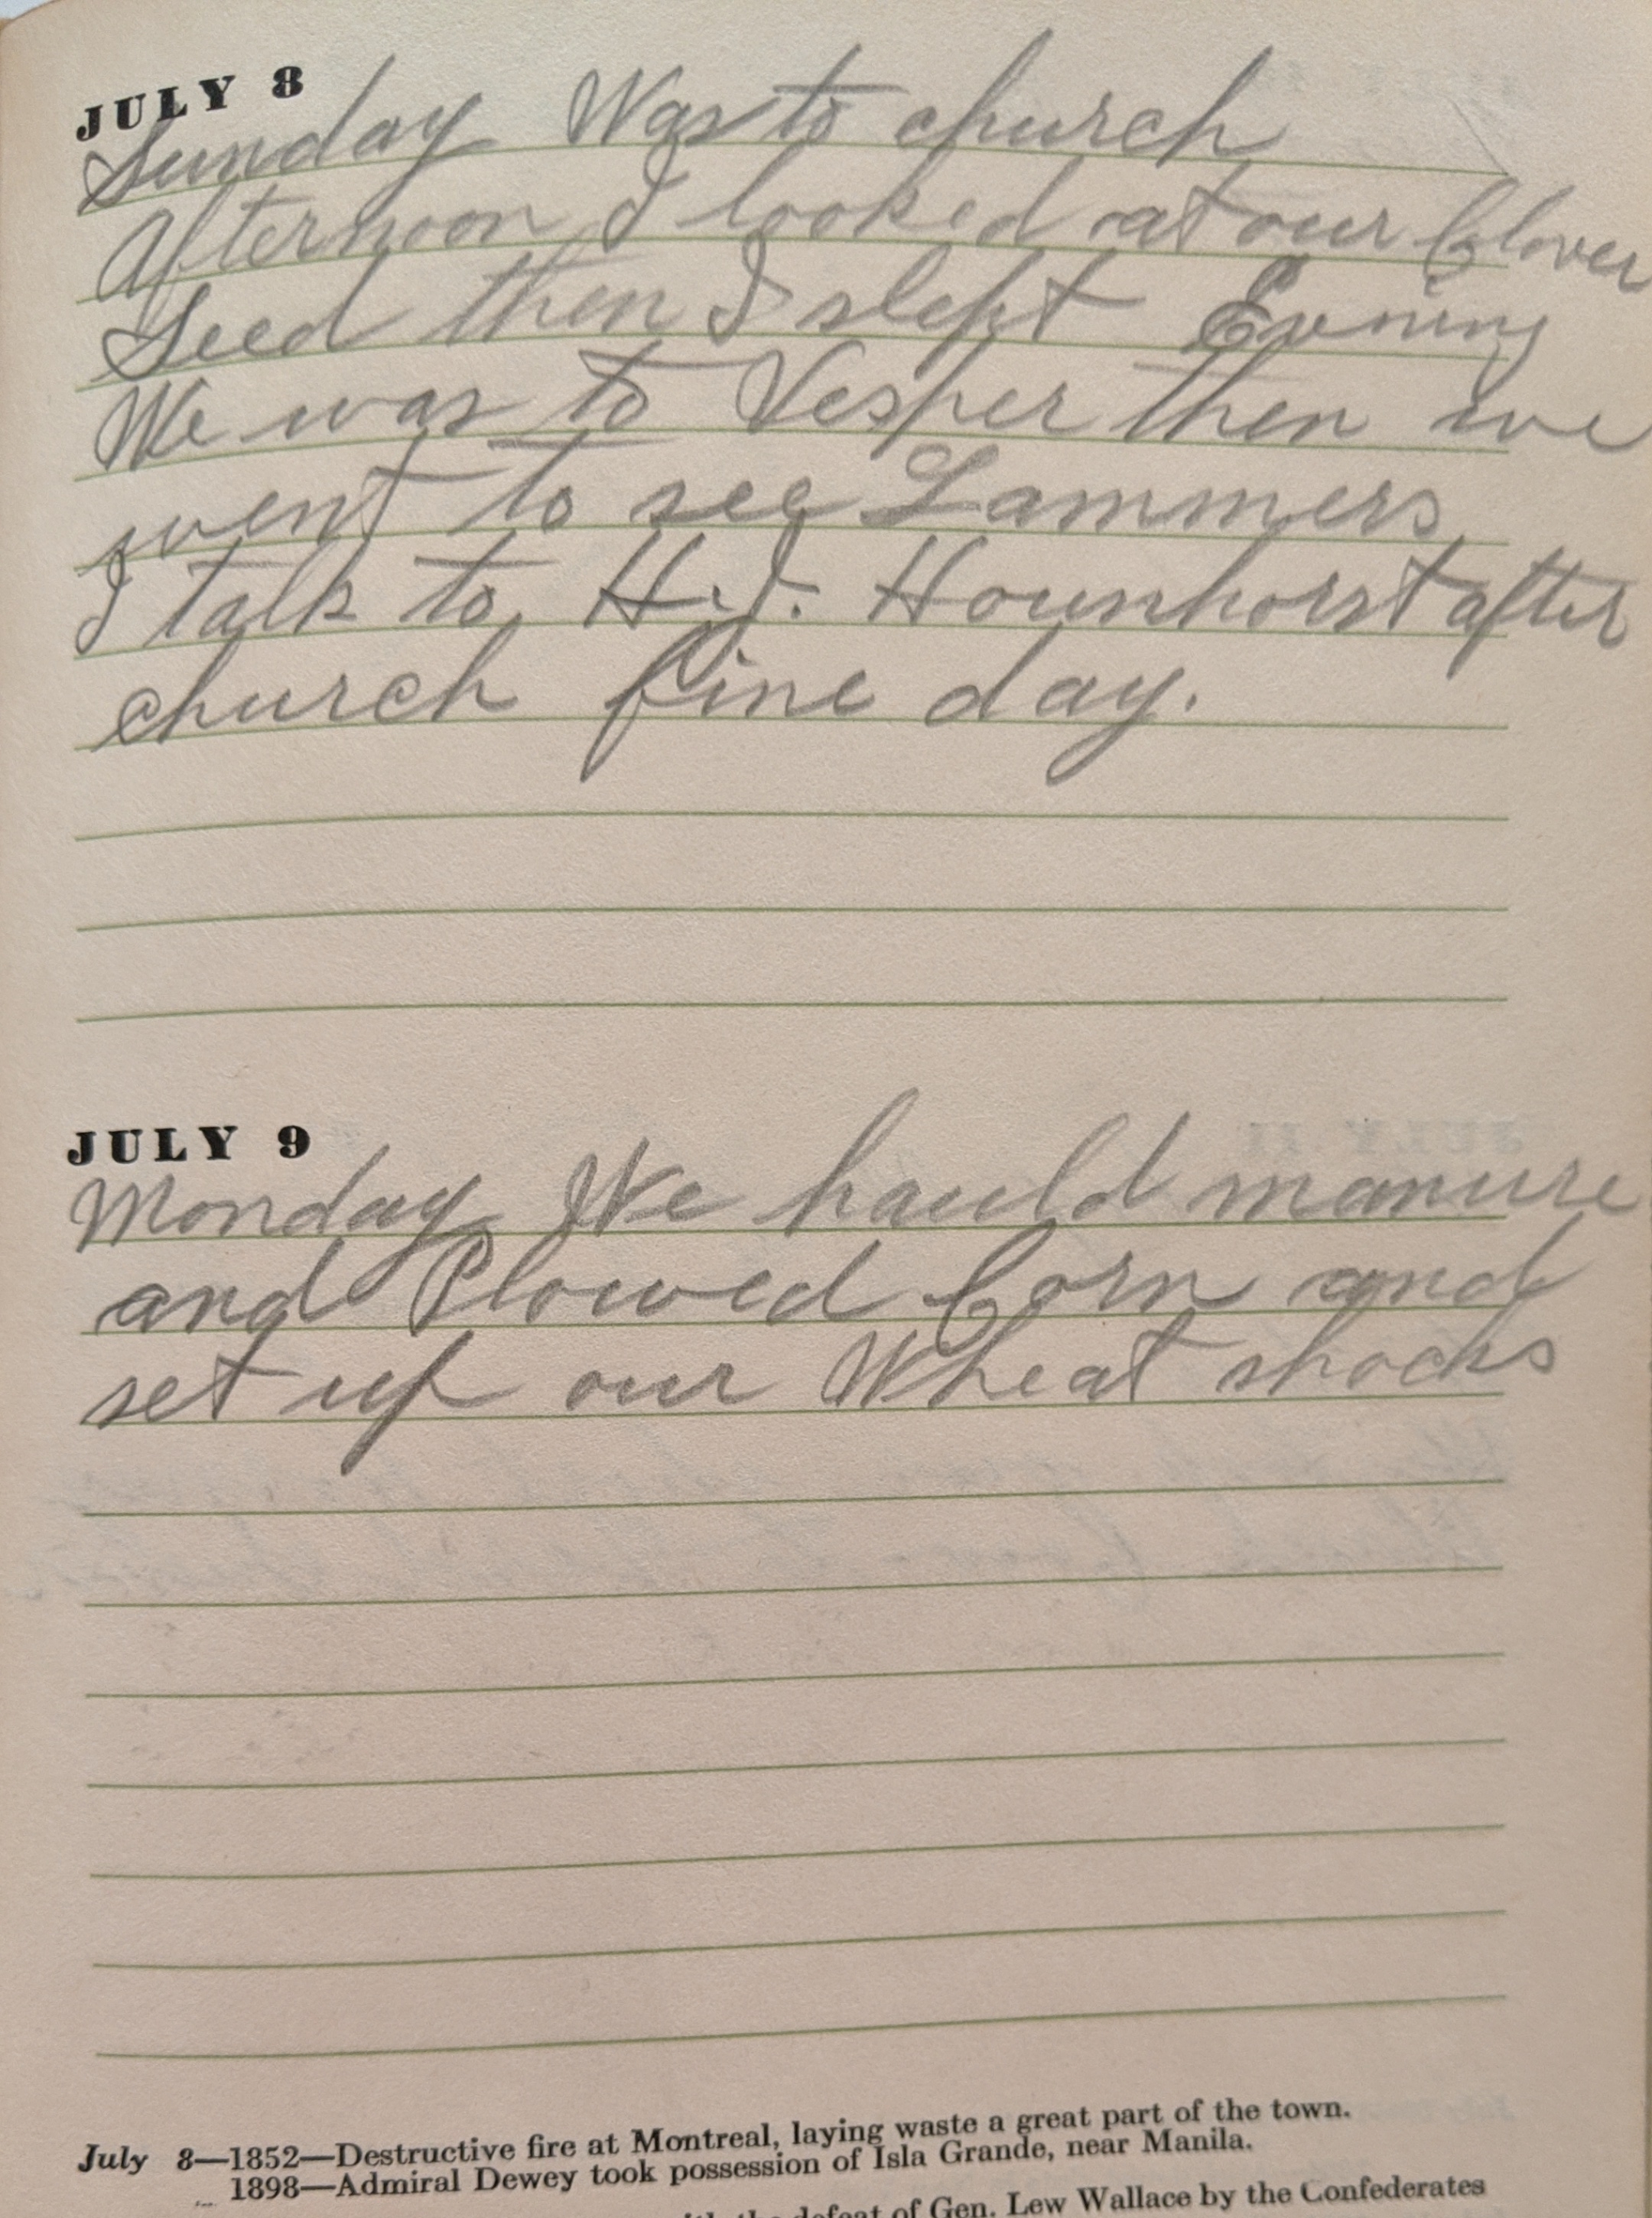 JULY 8
Sunday Was to church
Afternoon I looked at our Clover
Seed then I slept Evning
We was to Vesper then we
went to see Lammers
I talk to H.J. Hounhorst after
church fine day.
JULY 9
Monday We hauld manure
and Plowed Corn and
set up our Wheat shocks
July 8—1852—Destructive fire at Montreal, laying waste a great part of the town.
1898—Admiral Dewey took possession of Isla Grande, near Manila.
defeat of Gen. Lew Wallace by the Confederates